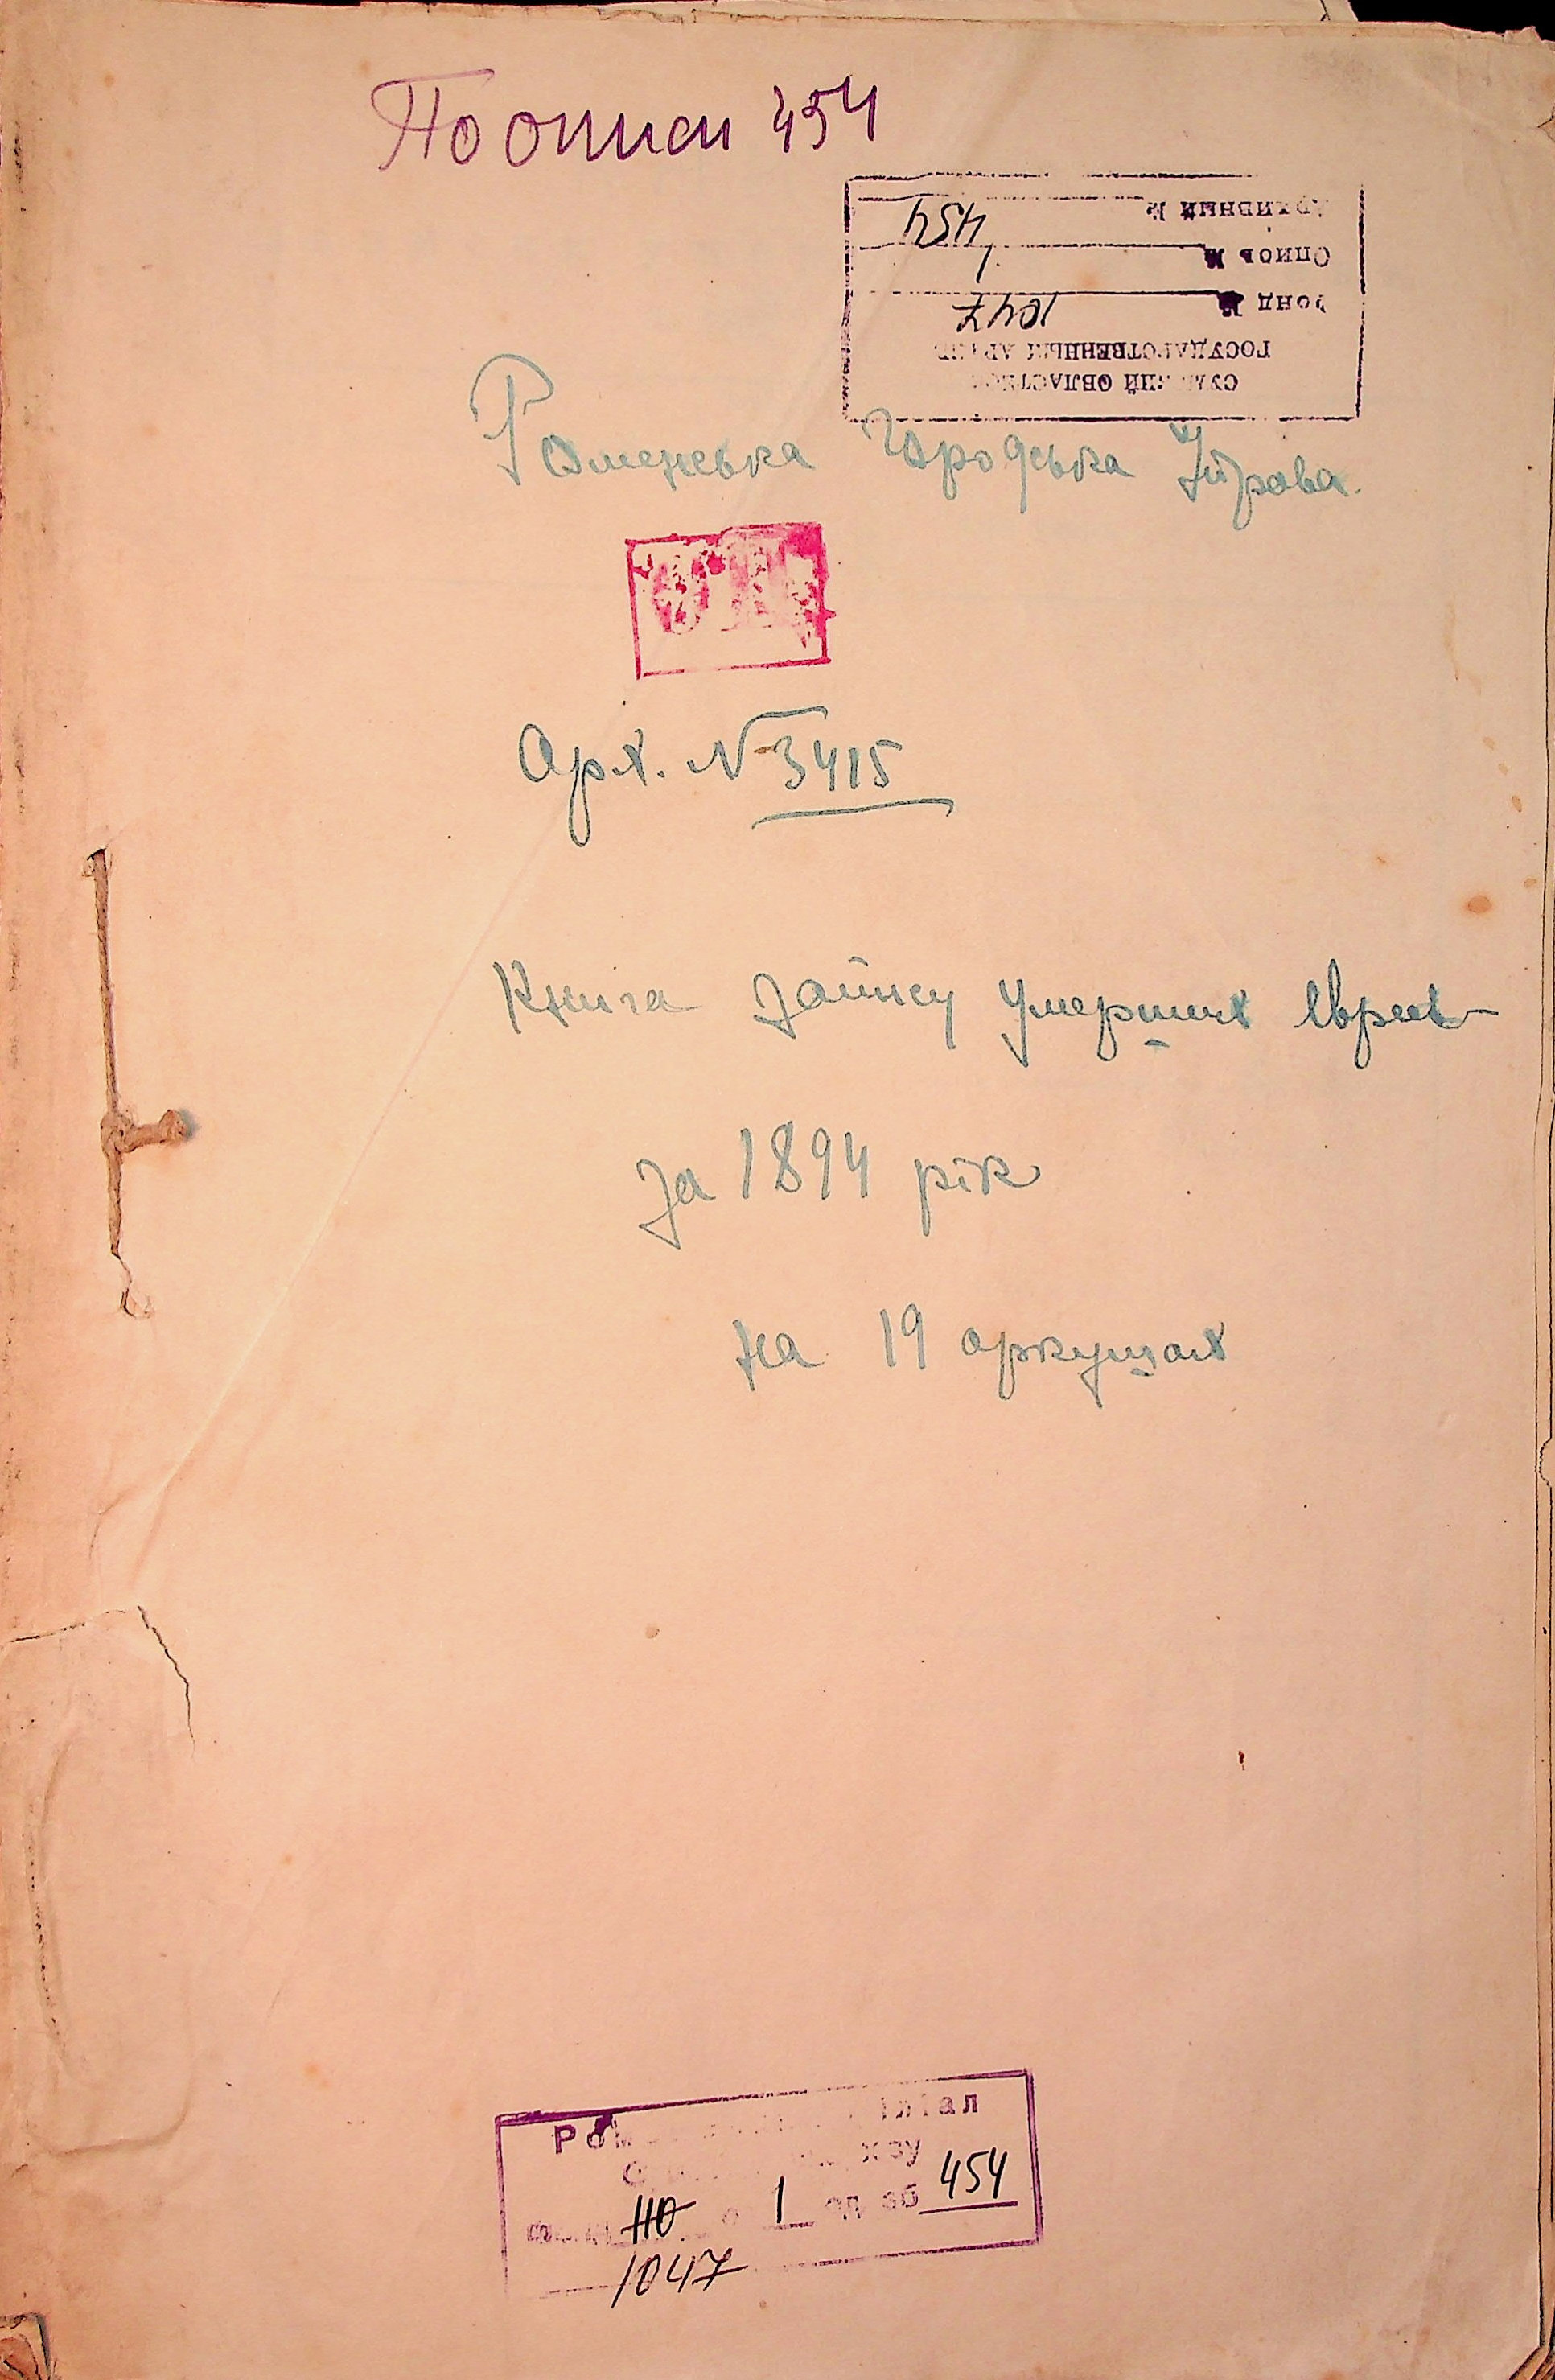 По описи 454
СУМСКИЙ ОБЛАСТНОЙ
ГОСУДАРСТВЕННЫЙ АРХИВ
Фонд № 1047
Опись № 1
Архивный № 454
Роменська Городська Управа.
Арх. № 3415
Книга запису умерших евреїв
за 1894 рік
на 19 аркушах
філіал
110 1 од зб 454
1047